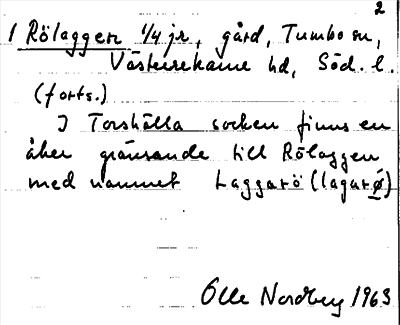 2
1 Rölaggen 1/4 jr, gård, Tumbo sn,
Västerrekarne hd, Söd. l.
(forts.)
I Torshälla socken finns en
åker gränsande till Rölaggen
med namnet Laggarö (lagarø̲)
Olle Nordberg 1963